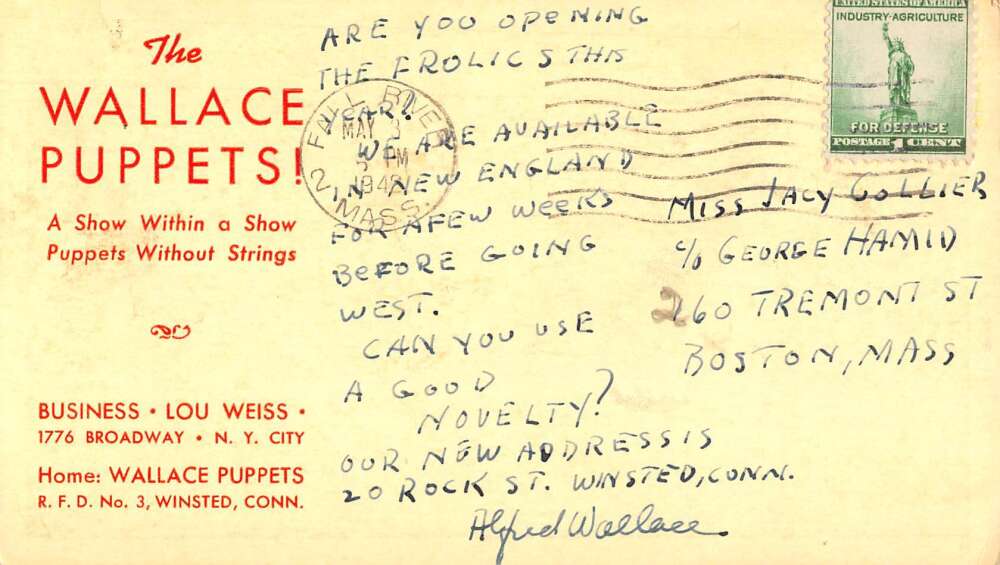 The
WALLACE
PUPPETS!
A Show Within a Show
Puppets Without Strings
BUSINESS • LOU WEISS •
1776 BROADWAY • N. Y. CITY
Home: WALLACE PUPPETS
R. F. D. No. 3, WINSTED, CONN.
ARE YOU OPENING
THE FROLICS THIS
YEAR?
WE ARE AVAILABLE
IN NEW ENGLAND
FOR A FEW WEEKS
BEFORE GOING
WEST.
CAN YOU USE
A GOOD
NOVELTY?
OUR NEW ADDRESS IS
20 ROCK ST. WINSTED, CONN.
Alfred Wallace
FALL RIVER
MAY 3
PM
MASS.
2
UNITED STATES OF AMERICA
INDUSTRY·AGRICULTURE
FOR DEFENSE
POSTAGE 1 CENT
MISS JACY COLLIER
c/o GEORGE HAMID
260 TREMONT ST
BOSTON, MASS